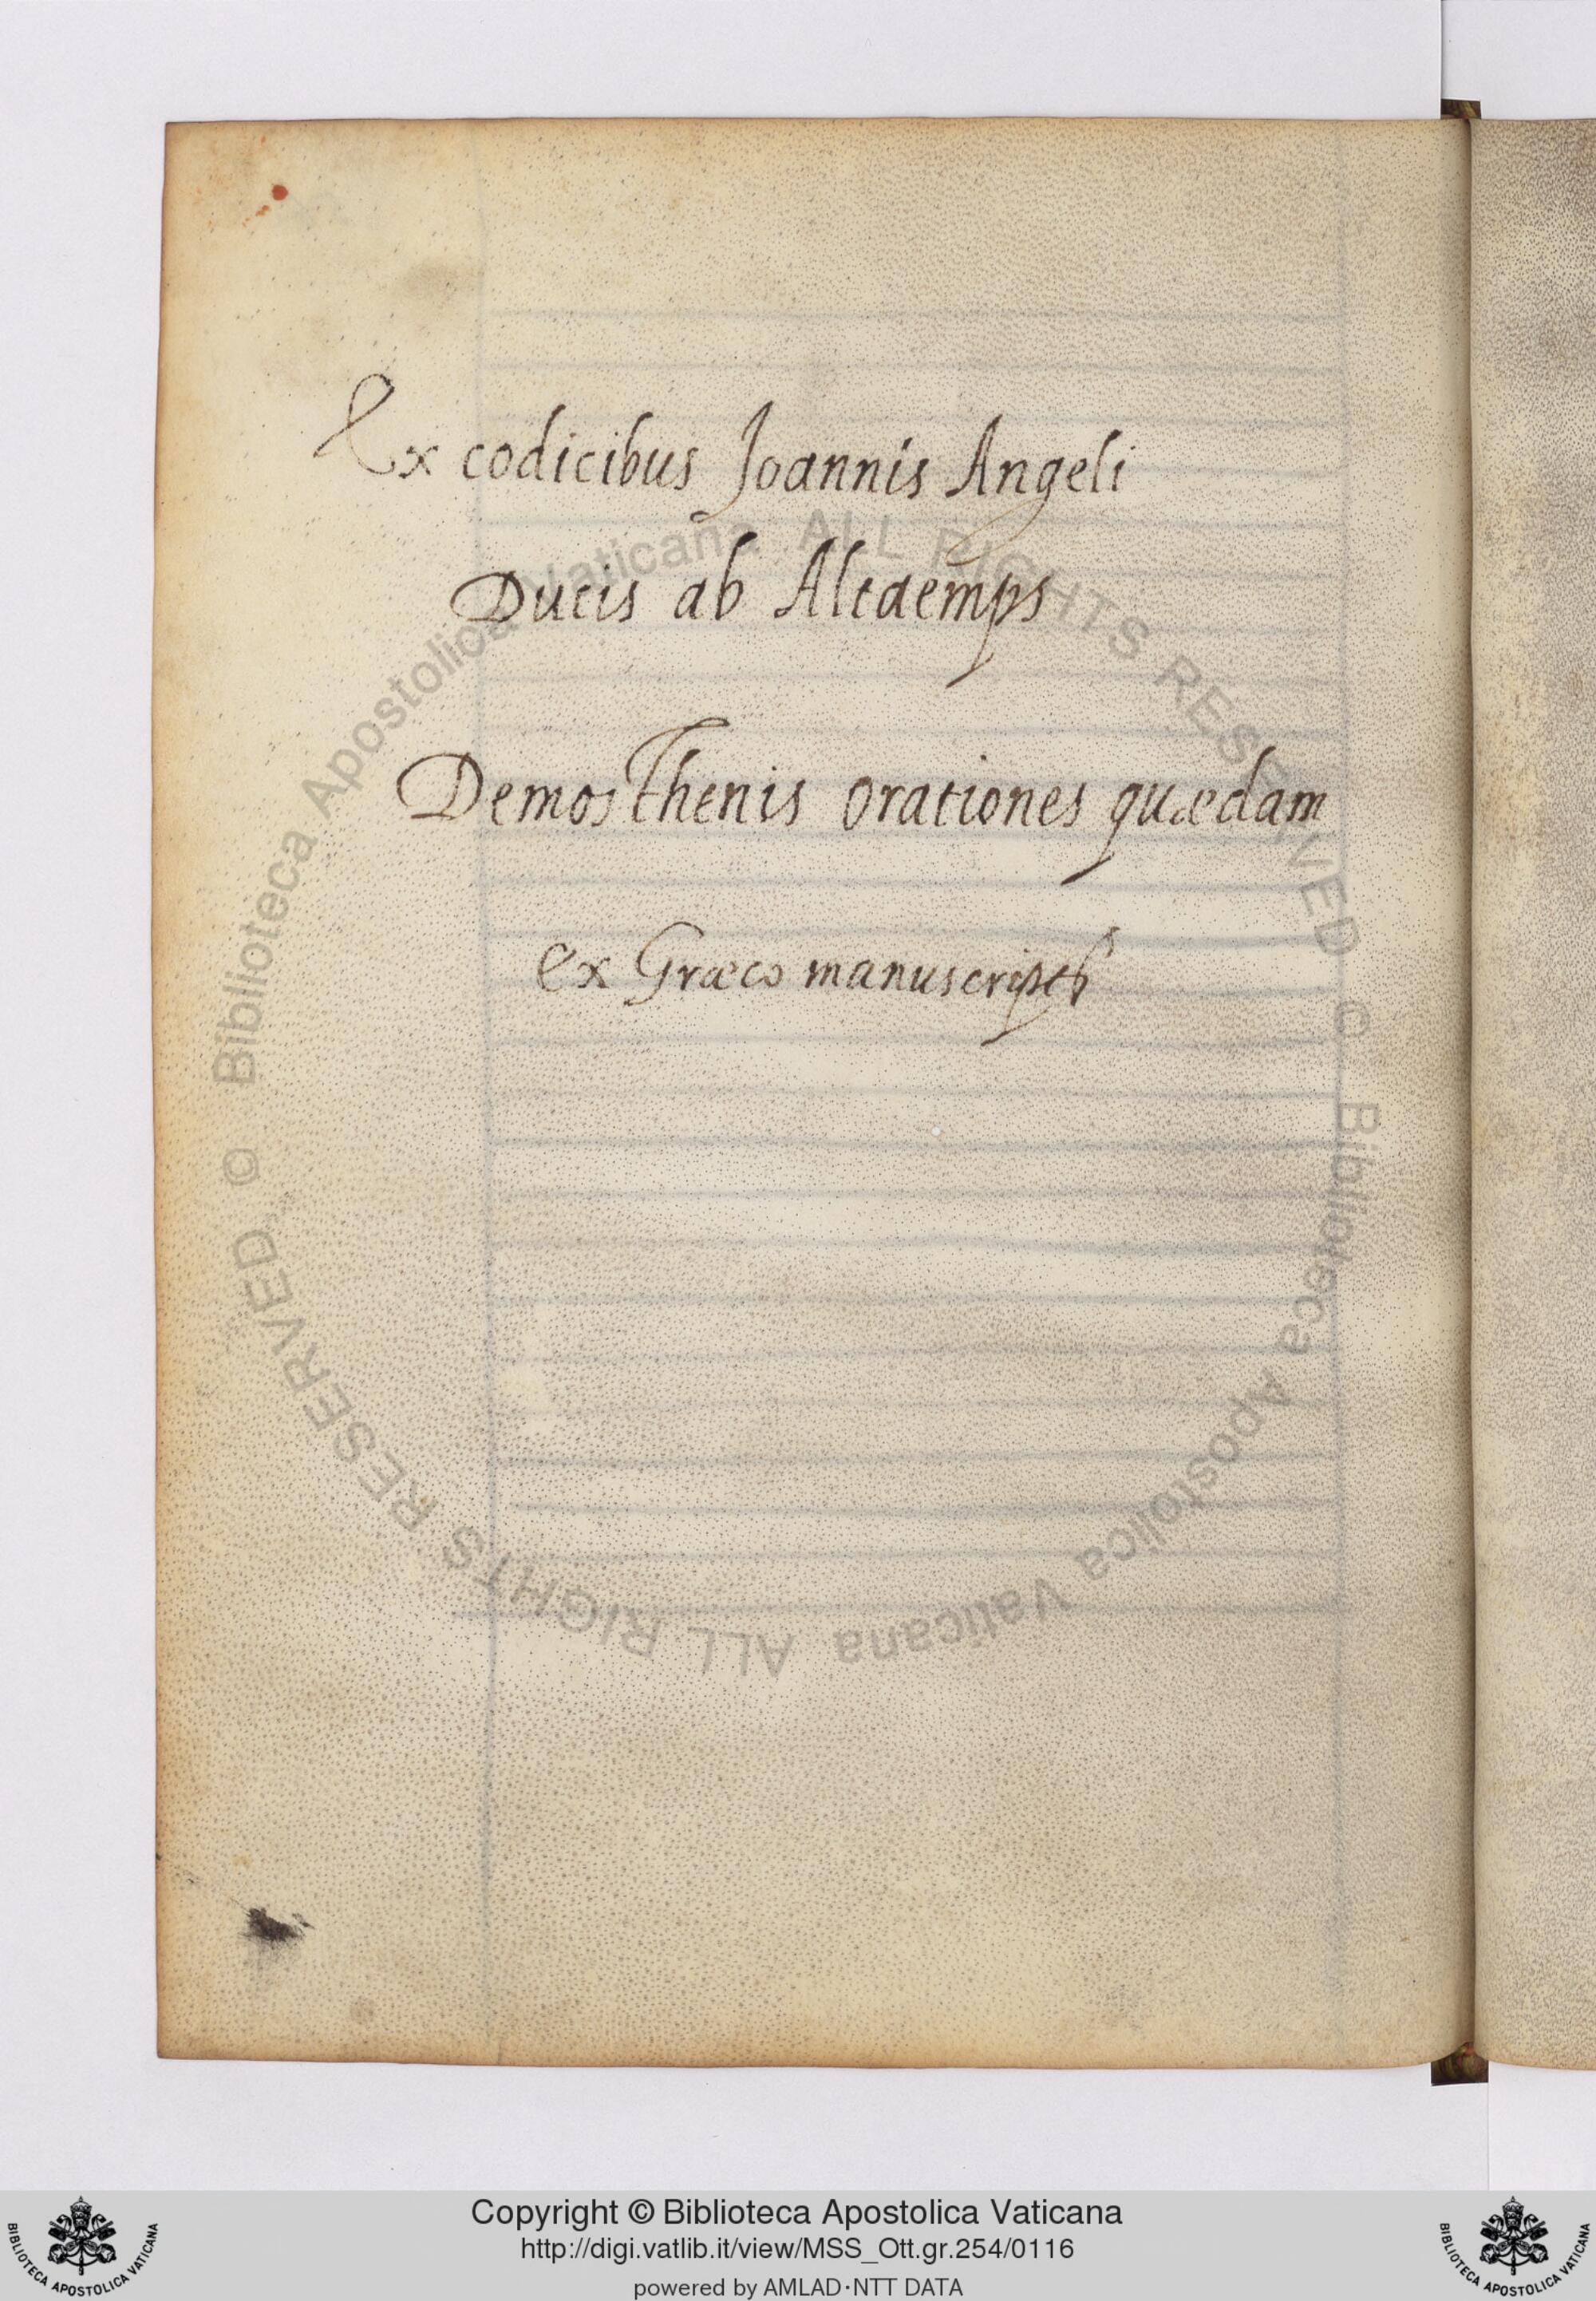 Ex codicibus Joannis Angeli
Ducis ab Altaemps
Demosthenis orationes quædam
ex Græco manuscripto
© Biblioteca Apostolica Vaticana ALL RIGHTS RESERVED
© Biblioteca Apostolica Vaticana ALL RIGHTS RESERVED
Copyright © Biblioteca Apostolica Vaticana
http://digi.vatlib.it/view/MSS_Ott.gr.254/0116
powered by AMLAD·NTT DATA
BIBLIOTECA APOSTOLICA VATICANA
BIBLIOTECA APOSTOLICA VATICANA